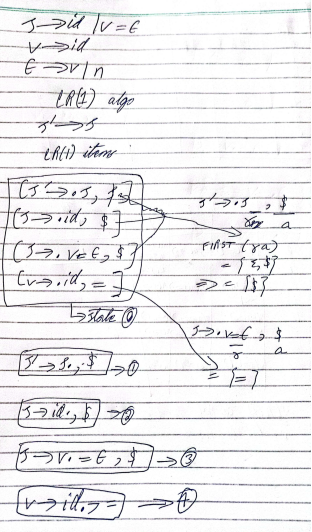 S → id | V = E
V → id
E → V | n
LR(1) algo
S' → S
LR(1) items
[S' → .S, $]
[S → .id, $]
[S → .V = E, $]
[V → .id, =]
→ State 0
S' → .S , $
a
FIRST (γa)
= {ε, $}
⇒ = {$}
S → .V = E , $
γ a
= {=}
S' → S., $ → 1
S → id., $ → 2
S → V. = E, $ → 3
V → id., = → 4